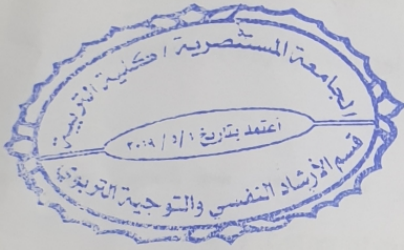 الجامعة المستنصرية / كلية التربية
اعتمد بتاريخ ١ / ٥ / ٢٠١٩
قسم الأرشاد النفسي والتوجية التربوي